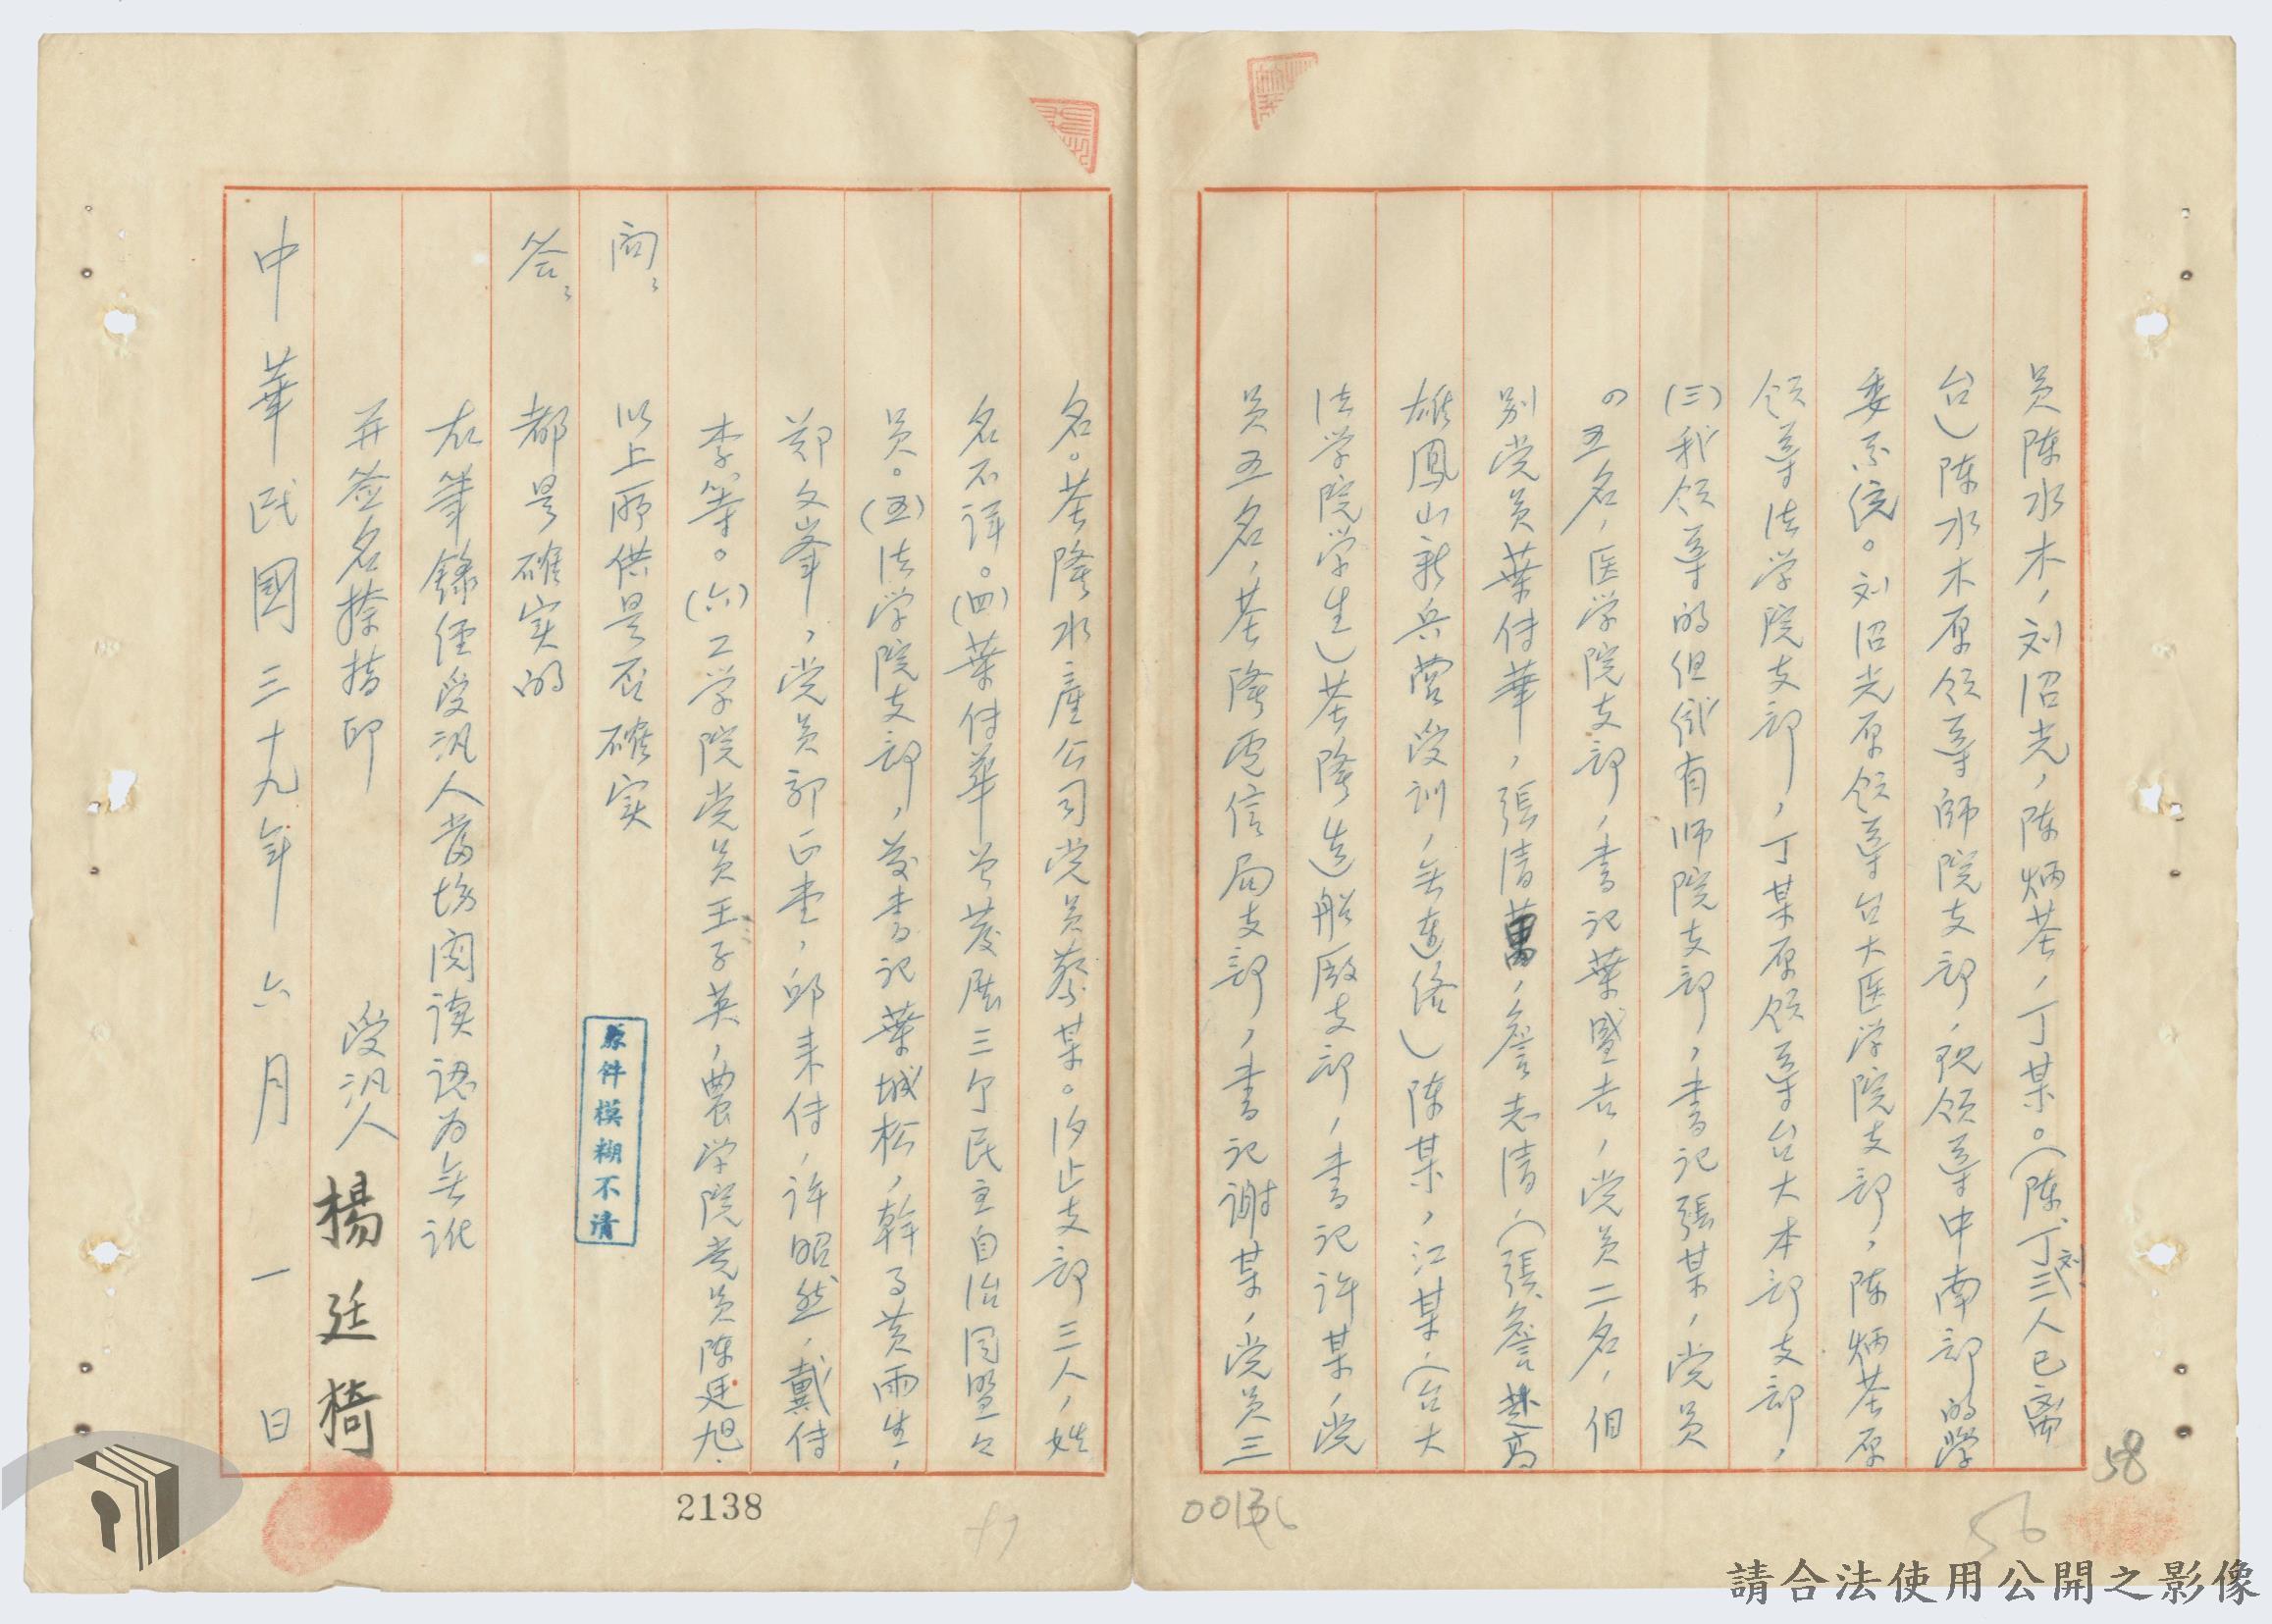 員陳水木，刘沼光，陳炳基，丁某。（陳、丁刘三人已离
台）陳水木原领導師院支部，現领導中南部的学
委系統。刘沼光原领導台大医学院支部，陳炳基原
领導法学院支部，丁某原领導台大本部支部，
(三)我领導的组织有师院支部，書记張某，党员
四五名，医学院支部，書记葉盛吉，党员二名，個
別党员葉传華，張清萬，詹志清，（張詹赴高
雄鳳山新兵营受训，無連络）陳某，江某，（台大
法学院学生）基隆造船厰支部，書记许某，党
员五名，基隆电信局支部，書记謝某，党员三
名。基隆水產公司党员蔡某。汐止支部三人，姓
名不详。(四)葉传華曾發展三个民主自治同盟盟
员。(五)法学院支部，前書记葉城松，幹事黄雨生，
郑文峯，党员郭正奎，邱来传，许昭然，戴传
李等。(六)工学院党员王子英，農学院党员陳廷旭
问：以上所供是否確实
答：都是確实的
右筆録经受汛人當场阅读認为無讹
并簽名捺指印
受汛人 楊廷椅
中華民國三十九年六月一日
原件模糊不清
2138
58
56
請合法使用公開之影像